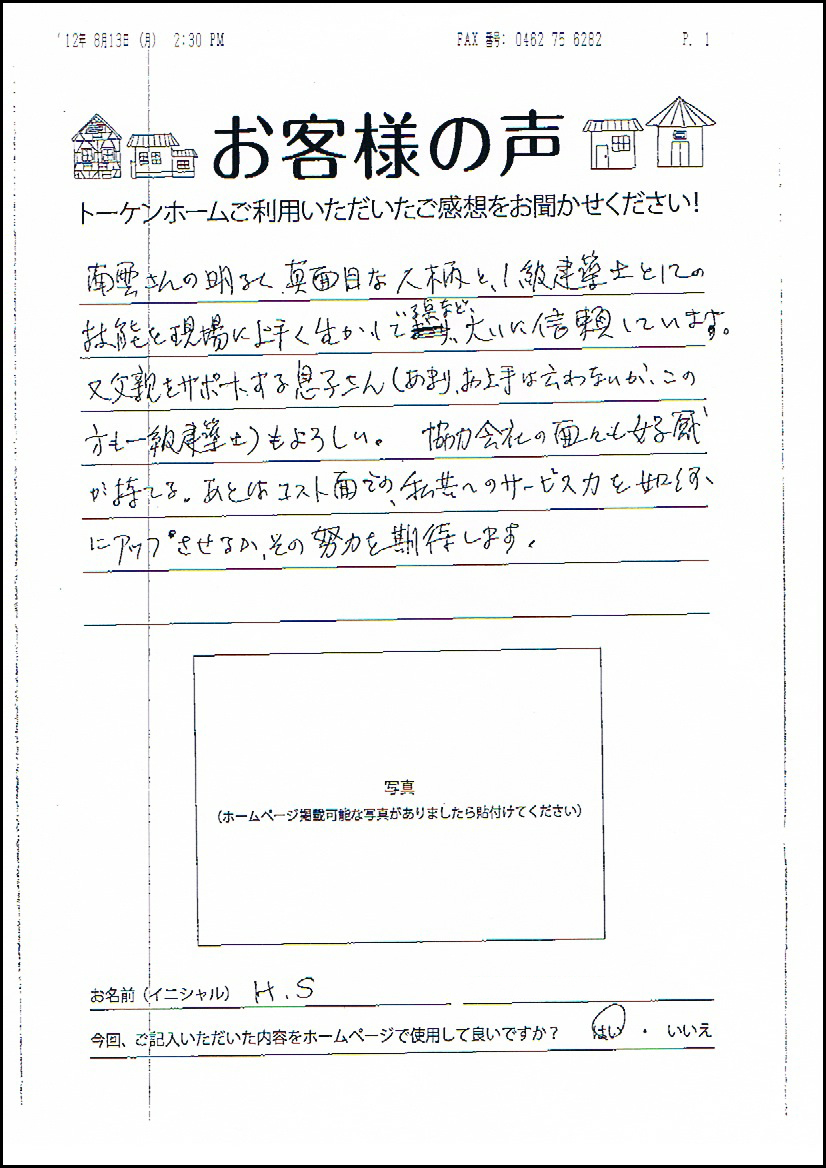 '12年 8月13日 (月) 2:30 PM FAX 番号: 0462 75 6282 P. 1
お客様の声
トーケンホームご利用いただいたご感想をお聞かせください!
南雲さんの明るく真面目な人柄と、1級建築士としての
技能を現場に上手く生かして 大いに信頼しています。
又父親をサポートする息子さん(あまり、お上手は云わないが、この
方も一級建築士)もよろしい。 協力会社の面々も好感
が持てる。あとはコスト面での、私共へのサービス力を如何
にアップさせるか、その努力を期待します。
写真
(ホームページ掲載可能な写真がありましたら貼付けてください)
お名前(イニシャル) H.S
今回、ご記入いただいた内容をホームページで使用して良いですか? はい ・ いいえ